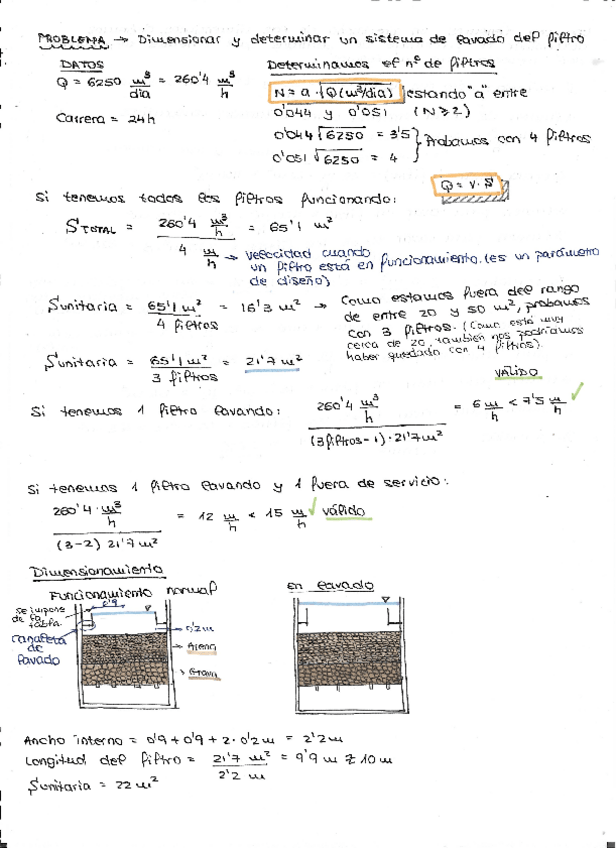 PROBLEMA → Dimensionar y determinar un sistema de lavado del filtro
DATOS
Q = 6250 m³/dia = 260'4 m³/h
Carrera = 24h
Determinamos el nº de filtros
N = a · √Q(m³/dia) estando "a" entre
0'044 y 0'051 (N ≥ 2)
0'044 √6250 = 3'5
0'051 √6250 = 4
Probamos con 4 filtros
Q = v · S
Si tenemos todos los filtros funcionando:
S TOTAL = 260'4 m³/h / 4 m/h = 65'1 m²
→ velocidad cuando
un filtro está en funcionamiento. (es un parámetro
de diseño)
Sunitaria = 65'1 m² / 4 filtros = 16'3 m² → Como estamos fuera del rango
de entre 20 y 50 m², probamos
con 3 filtros. (Como está muy
cerca de 20, también nos podríamos
haber quedado con 4 filtros).
Sunitaria = 65'1 m² / 3 filtros = 21'7 m²
VÁLIDO
Si tenemos 1 filtro lavando: 260'4 m³/h / (3 filtros - 1) · 21'7 m² = 6 m/h < 7'5 m/h ✓
Si tenemos 1 filtro lavando y 1 fuera de servicio:
260'4 · m³/h / (3-2) 21'7 m² = 12 m/h < 15 m/h ✓ válido
Dimensionamiento
Funcionamiento normal
en lavado
0'9
se supone
de la
tabla
canaleta
de
lavado
0'2m
→ Arena
→ Grava
Ancho interno = 0'9 + 0'9 + 2 · 0'2 m = 2'2 m
Longitud del filtro = 21'7 m² / 2'2 m = 9'9 m ≈ 10 m
Sunitaria = 22 m²